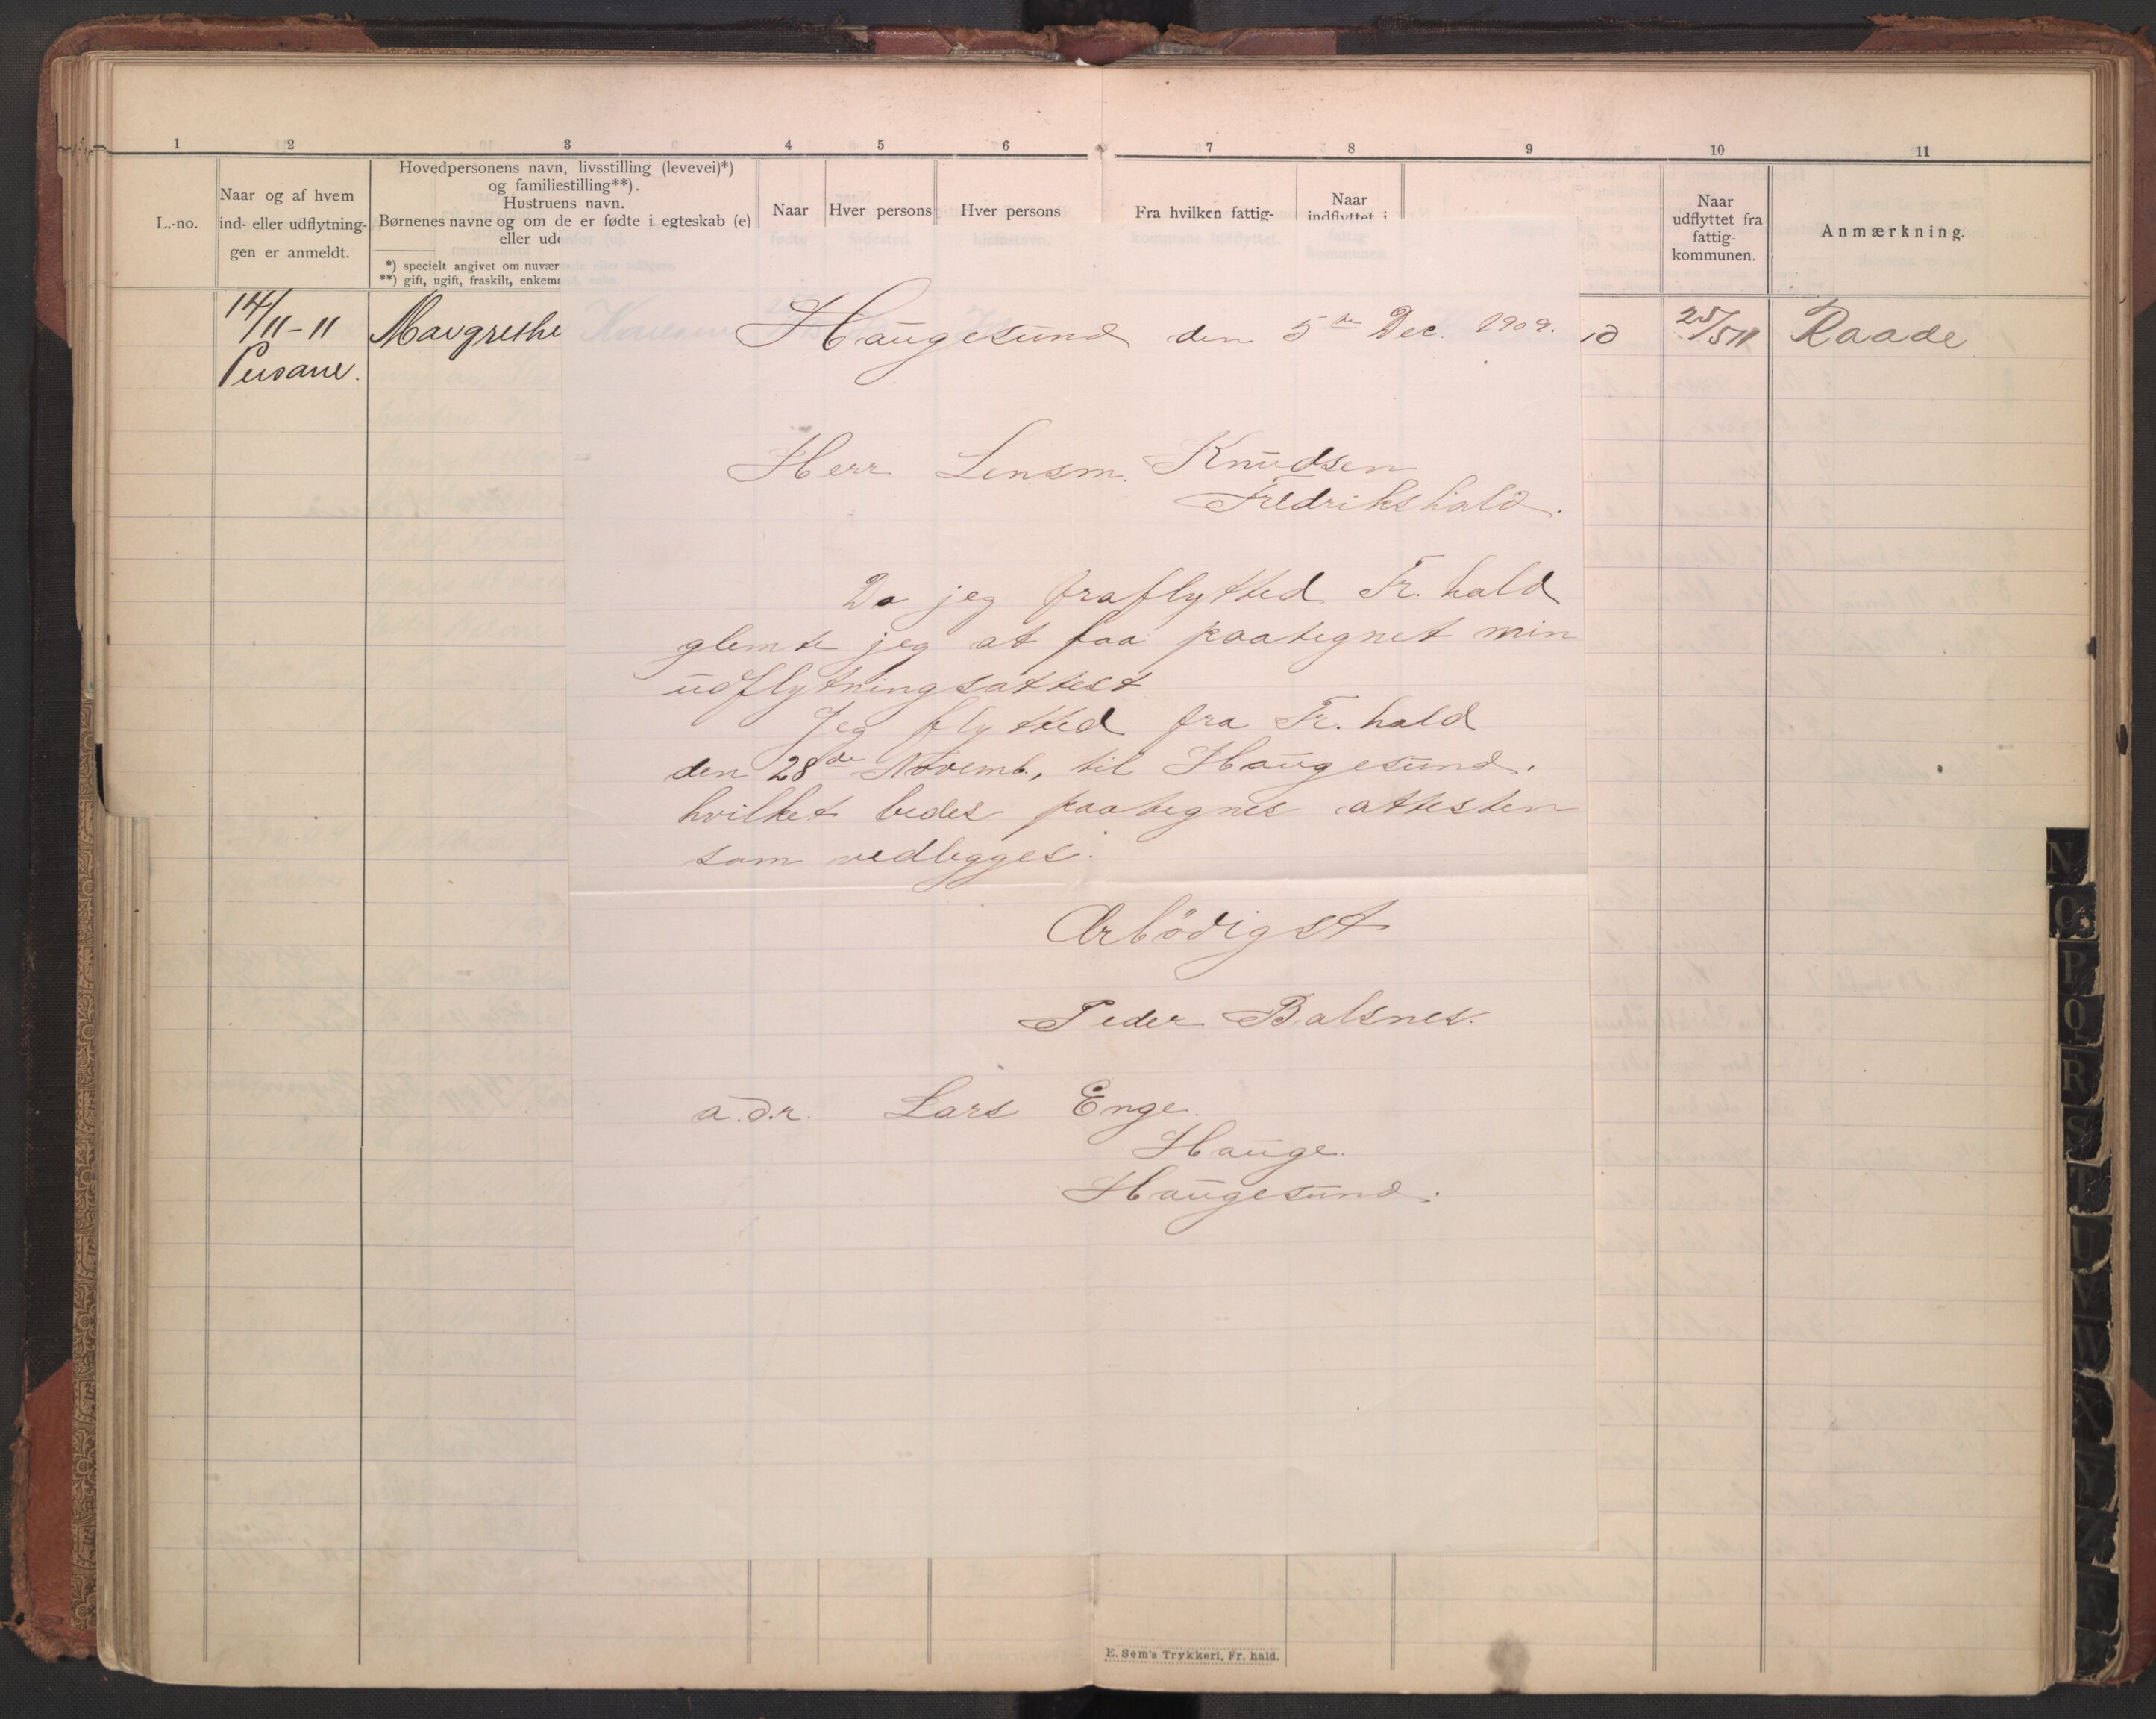 1 2 3 4 5 6 7 8 9 10 11
L.-no.
Naar og af hvem
ind- eller udflytnin-
gen er anmeldt.
Hovedpersonens navn, livsstilling (levevei)*)
og familiestilling**).
Hustruens navn.
Børnenes navne og om de er fødte i egteskab (e)
eller ud
*) specielt angivet om nuvær
**) gift, ugift, fraskilt, enkem
Naar
Hver persons
Hver persons
Fra hvilken fattig-
Naar
indflyttet i
Naar
udflyttet fra
fattig-
kommunen.
Anmærkning.
14/11-11
Margrethe
25/5 11
Raade
Haugesund den 5te Dec. 1909.
Herr Lensm. Knudsen
Fredrikshald.
Da jeg fraflytted Fr. hald
glemte jeg at faa paategnet min
udflytningsattest
Jeg flytted fra Fr. hald
den 28de Novemb., til Haugesund.
hvilket bedes paategnes attesten
som vedlegges.
Ærbödigst
Peder Balsnes.
a.d.r. Lars Enge.
Hauge.
Haugesund.
E. Sem's Trykkeri, Fr. hald.
N
O
P
Q
R
S
T
U
V
W
X
Y
Z